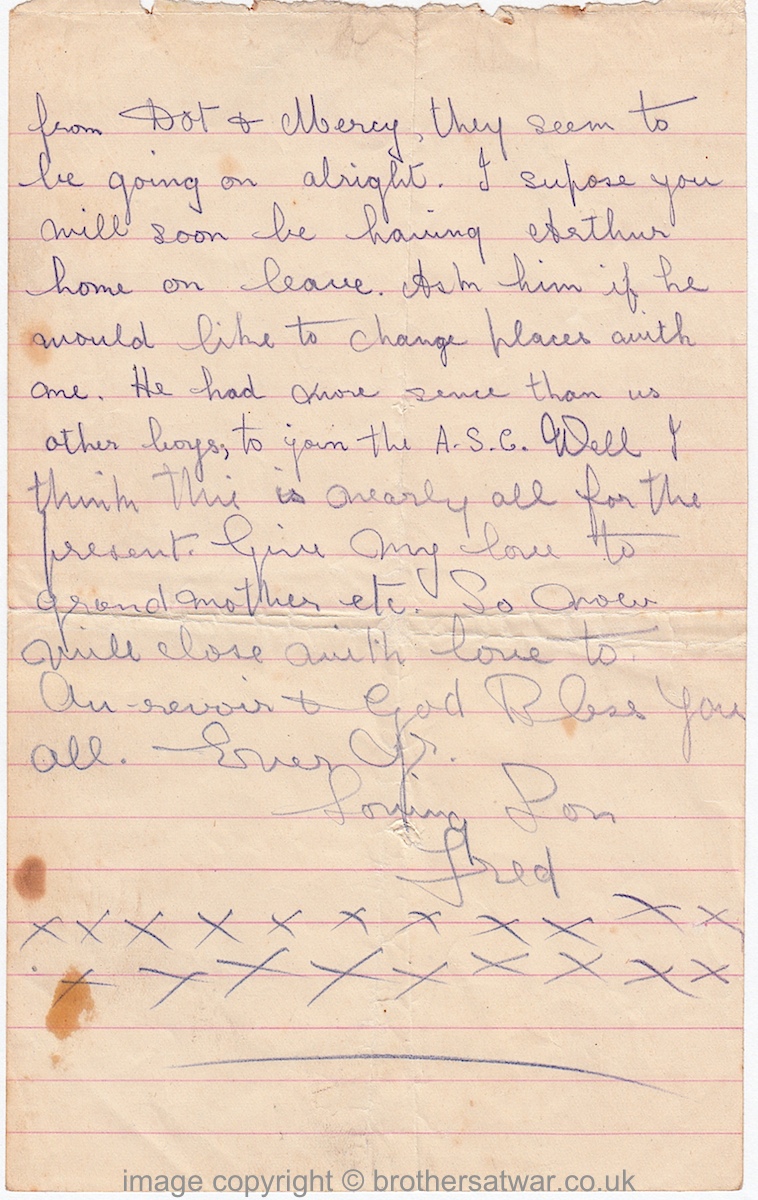 from Dot & Mercy, they seem to
be going on alright. I supose you
will soon be having Arthur
home on leave. Ask him if he
would like to change places with
me. He had more sence than us
other boys, to join the A.S.C. Well I
think this is nearly all for the
present. Give my love to
grandmother etc. So now
will close with love to.
Au-revoir & God Bless You
all. Ever Yr.
Loving Son
Fred
x x x x x x x x x x x
x x x x x x x x x
image copyright © brothersatwar.co.uk